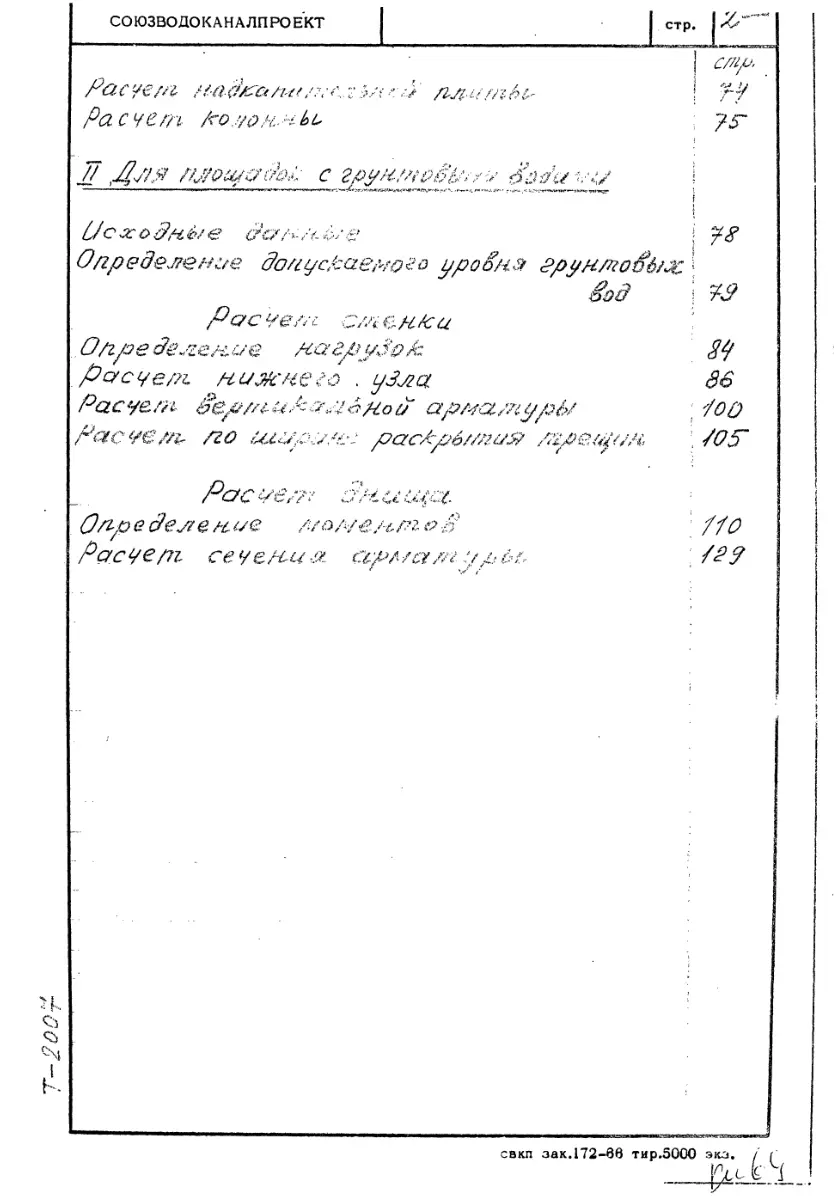 СОЮЗВОДОКАНАЛПРОЕКТ стр. 2
стр.
Расчет надкапительной плиты 74
Расчет колонны 75
II Для площадок с грунтовыми водами
Исходные данные 78
Определение допускаемого уровня грунтовых
вод 79
Расчет стенки
Определение нагрузок 84
Расчет нижнего узла 86
Расчет вертикальной арматуры 100
Расчет по ширине раскрытия трещин 105
Расчет днища
Определение моментов 110
Расчет сечения арматуры 129
Т-2007
свкп зак.172-66 тир.5000 экз.